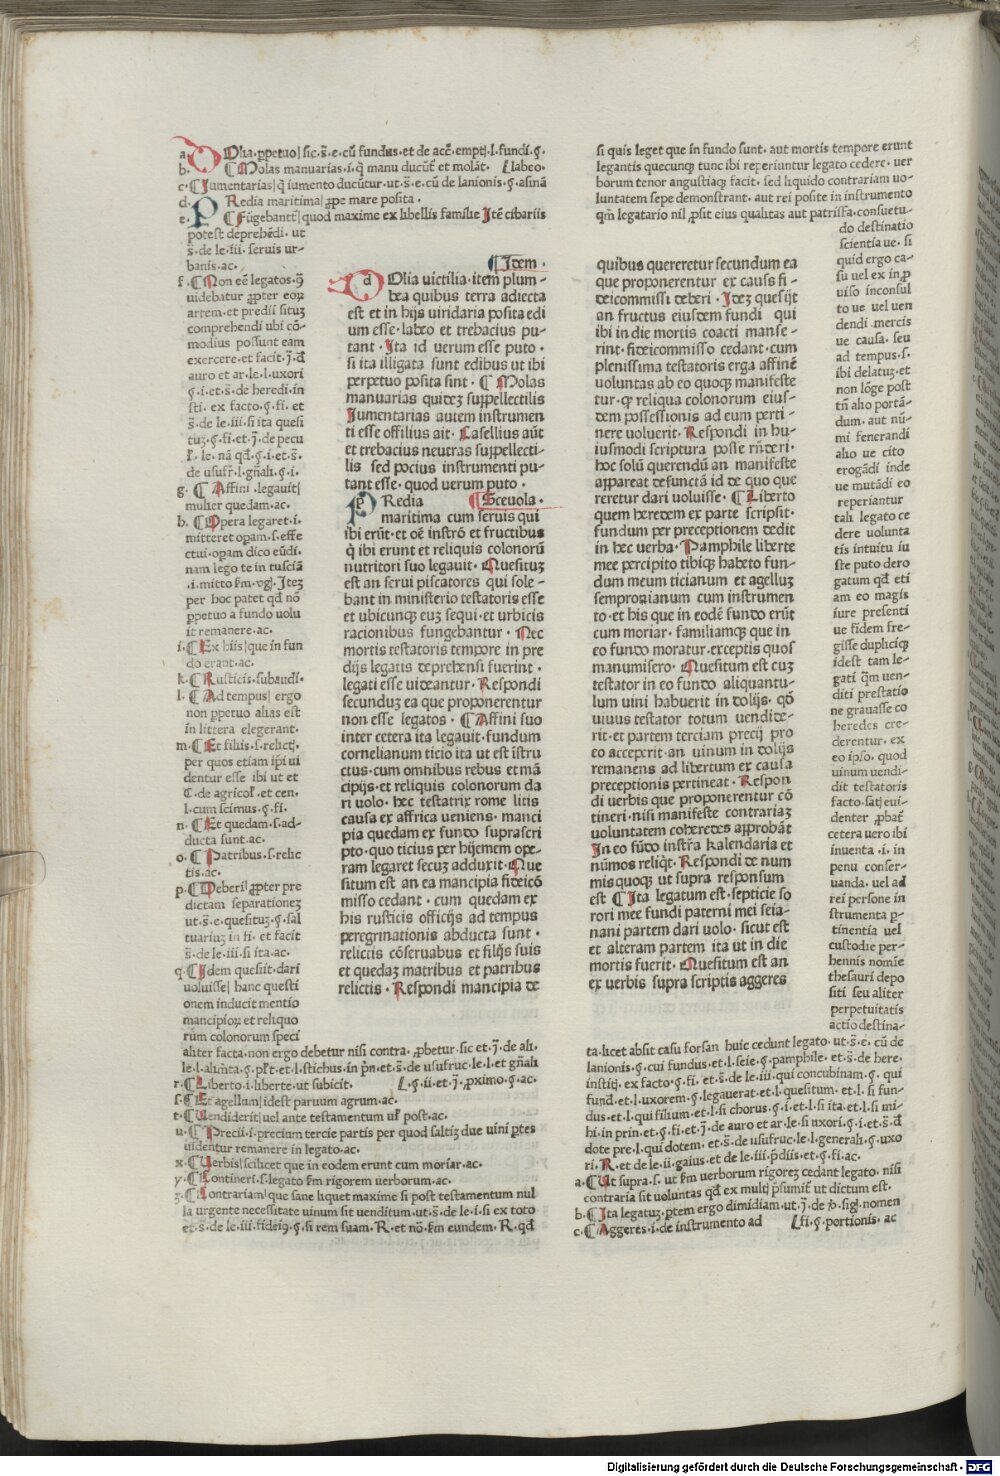 a. DOlia.ꝑpetuo|sic.s̄.e.cū fundus.et de acc̄.emptị.l.fundi.ꝯ.
b. ¶Molas manuarias.i.q̄ manu ducūt̄ et molāt. [labeo.
c. ¶Iumentarias|q̄ iumento ducūtur.ut.s̄.e.cū de lanionis.ꝯ.asinā
d. PRedia maritima|ꝓpe mare posita.
e. ¶Fūgebantt̄|quod maxime ex libellis familie Itē cibariis
potest deprehēdi. ut
s̄.de le.iii. seruis ur-
banis.ac.
f. ¶Non eē legatos.
uidebatur ꝓpter eoꝝ
artem.et predii situꝫ
comprehendi ubi cō-
modius possunt eam
exercere.et facit.
auro et ar.le.l.uxori
ꝯ.i.et.s̄.de heredi.in
sti. ex facto.ꝯ.fi. et
s̄.de le.iii.si ita quesi
tuꝫ.ꝯ.fi.et.de pecu
le.nā qd̄.ꝯ.i.et.s̄.
de usufr̄.l.gn̄ali.ꝯ.i.
g. ¶Affini.legauit|
mulier quedam.ac.
h. ¶Opera legaret.i.
mitteret opam.s.effe
ctui.opam dico eūdi.
nam lego te in tusciā
.i.mitto Itez
per hoc patet qd̄ nō
ꝑpetuo a fundo uolu
it remanere.ac.
i. ¶Ex hiis|que in fun
do erant.ac.
k. ¶Rusticis.subaudi.
l. ¶Ad tempus| ergo
non ꝑpetuo alias est
in littera elegerant.
m. ¶Et filiis.s.relictị.
per quos etiam ip̄i ui
dentur esse ibi ut et
C.de agricol̄.et cen.
l.cum scimus.ꝯ.fi.
n. ¶Et quedam.s.ad-
ducta sunt.ac.
o. ¶Patribus.s.relic
tis.ac.
p. ¶Deberi|ꝓpter pre
dictam separationeꝫ
ut.s̄.e.quesituꝫ.ꝯ.sal
tuariuꝫ in fi. et facit
s̄.de le.iii.si ita.ac.
q. ¶Idem quesiit.dari
uoluisse|hanc questi
onem inducit mentio
mancipioꝝ et reliquo
rūm colonorum speci
aliter facta.non ergo debetur nisi contra. ꝓbetur.sic et.de ali.
le.l.alim̄ta.ꝯ.et.l.stichus.in pn̄.et s̄.de usufruc.le.l.et gn̄ali
r. ¶Liberto.i.liberte.ut subicit. [.ꝯ.ii.et.ꝓximo.ꝯ.ac.
s. ¶Et agellum|idest paruum agrum.ac.
t. ¶Uendiderit|uel ante testamentum post.ac.
u. ¶Precii.i.precium tercie partis per quod saltiꝫ due uini ꝑtes
uidentur remanere in legato.ac.
x. ¶Uerbis|scilicet que in eodem erunt cum moriar.ac.
y. ¶Contineri.s.legato rigorem uerborum.ac.
z. ¶Contrariam|que sane liquet maxime si post testamentum nul
la urgente necessitate uinum sit uenditum.ut.s̄.de le.i.si ex toto
et.s̄.de le.iii.ꝯ.si rem suam.R.et nō.eundem.R.qd̄
¶Idem.
DOlia uictilia.item plum-
bea quibus terra adiecta
est et in hijs uiridaria posita edi
um esse.labeo et trebacius pu-
tant.Ita id uerum esse puto.
si ita illigata sunt edibus ut ibi
perpetuo posita sint. ¶Molas
manuarias quiteꝫ supꝑellectilis
Iumentarias autem instrumen
ti esse offilius ait. Casellius aūt
et trebacius neutras supꝑellecti-
lis sed pocius instrumenti pu-
tant esse.quod uerum puto.
PRedia ¶Sceuola.
maritima cum seruis qui
ibi erūt.et oē instrō et fructibus
q̄ ibi erunt et reliquis colonorū
nutritori suo legauit. Quesituꝫ
est an serui piscatores qui sole-
bant in ministerio testatoris esse
et ubicunque euꝫ sequi.et urbicis
racionibus fungebantur. Nec
mortis testatoris tempore in pre
dijs legatis deprehensi fuerint.
legati esse uideantur. Respondi
secunduꝫ ea que proponerentur
non esse legatos. ¶Affini suo
inter cetera ita legauit.fundum
cornelianum ticio ita ut est īstru
ctus.cum omnibus rebus et mā
cipijs.et reliquis colonorum da
ri uolo.hec testatrix rome litis
causa ex affrica ueniens.manci
pia quedam ex fundo suprascri
pto.quo ticius per hijemem ope-
ram legaret secuꝫ adduxit.Que
situm est an ea mancipia fideicō
misso cedant. cum quedam ex
his rusticis officijs ad tempus
peregrinationis abducta sunt.
relictis cōseruabus et filijs suis
et quedaꝫ matribus et patribus
relictis. Respondi mancipia de
si quis leget que in fundo sunt. aut mortis tempore erunt
legantis quecunqꝫ tunc ibi reperiuntur legato cedere. uer
borum tenor angustiaqꝫ facit. sed liquido contrariam uo-
luntatem sepe demonstrant. aut rei posite in instrumento
qm̄ legatario nil ꝓsit eius qualitas aut patriſſa.consuetu-
do destinatio
scientia ue. si
quid ergo ca-
su uel ex inꝓ
uiso inconsul
to ue uel uen
dendi mercis
ue causa. seu
ad tempus.s.
ibi delatuꝫ.et
non lōge post
tn̄ alio portā-
dum. aut nū-
mi fenerandi
alio ue cito
erogādi inde
ue mutādi eo
reperiantur
tali legato ce
dere uolunta
tis intuitu iu
ste puto dero
gatum qd̄ eti
am eo magis
iure presenti
ue fidem fre-
gisse dupliciqꝫ
idest tam le-
gati q̄m uen-
diti prestatio
ne grauasse co
heredes cre-
derentur. ex
eo ip̄o. quod
uinum uendi-
dit testatoris
facto.satị eui-
denter ꝓbat̄
cetera uero ibi
inuenta.i.in
penu conser-
uanda.uel ad
rei persone in
strumenta ꝑ-
tinentia uel
custodie per-
hennis nomīe
thesauri depo
siti seu aliter
perpetuitatis
actio destina-
ta.licet absit casu forsan huic cedunt legato.ut.s̄.e. cū de
lanionis.ꝯ.cui fundus.et.l.seie.ꝯ.pamphile.et.s̄.de here.
institị.ex facto.ꝯ.fi.et.s̄.de le.iii.qui concubinam.ꝯ. qui
fund̄.et.l.uxorem.ꝯ.legauerat.et.l.quesitum.et.l.si fun-
dus.et.l.qui filium.et.l.si chorus.ꝯ.i.et.l.si ita.et.l.si mi-
hi.in prin.et.ꝯ.fi.et.de auro et ar.le.si uxori.ꝯ.i.et.s̄.d̄
dote pre.l.qui dotem.et.s̄.de usufruc.le.l.generali.ꝯ.uxo
ri.R.et de le.ii.gaius.et de le.iii.p̄diis.et.ꝯ.fi.ac.
a. ¶Ut supra.s.ut uerborum rigoreꝫ cedant legato. nisi
contraria sit uoluntas qd̄ ex multị p̄sumit̄ ut dictum est.
b. ¶Ita legatuꝫ.ꝑtem ergo dimidiam.ut.de sigl.nomen
c. ¶Aggeres.i.de instrumento ad [fi.ꝯ.portionis. ac
quibus quereretur secundum ea
que proponerentur ex causs fi-
deicommissi deberi. Ideꝫ quesijt
an fructus eiusdem fundi qui
ibi in die mortis coacti manse-
rint.fideicommisso cedant.cum
plenissima testatoris erga affinē
uoluntas ab eo quoqꝫ manifeste
tur.ꝙ reliqua colonorum eius-
dem possessionis ad eum perti-
nere uoluerit. Respondi in hu-
iusmodi scriptura posse rn̄deri.
hoc solū querendū an manifeste
appareat defunctā id de quo que
reretur dari uoluisse. ¶Liberto
quem heredem ex parte scripsit.
fundum per preceptionem dedit
in hec uerba. Pamphile liberte
mee percipito tibiqꝫ habeto fun-
dum meum ticianum et agelluꝫ
sempronianum cum instrumen
to.et his que in eodē fundo erūt
cum moriar. familiamqꝫ que in
eo fundo moratur.exceptis quos
manumisero. Quesitum est cuꝫ
testator in eo fundo aliquantu-
lum uini habuerit in dolijs. qd̄
uiuus testator totum uendide-
rit.et partem terciam precij pro
eo acceperit.an uinum in dolijs
remanens ad libertum ex causa
preceptionis pertineat. Respon
di uerbis que proponerentur cō
tineri.nisi manifeste contrariaꝫ
uoluntatem coheredes approbāt
In eo fūdo instr̄a kalendaria et
nūmos reliqt̄. Respondi de num
misquoqꝫ ut supra responsum
est ¶Ita legatum est.septicie so
rori mee fundi paterni mei seia-
nani partem dari uolo. sicut est
et alteram partem ita ut in die
mortis fuerit. Quesitum est an
ex uerbis supra scriptis aggeres
Digitalisierung gefördert durch die Deutsche Forschungsgemeinschaft - DFG